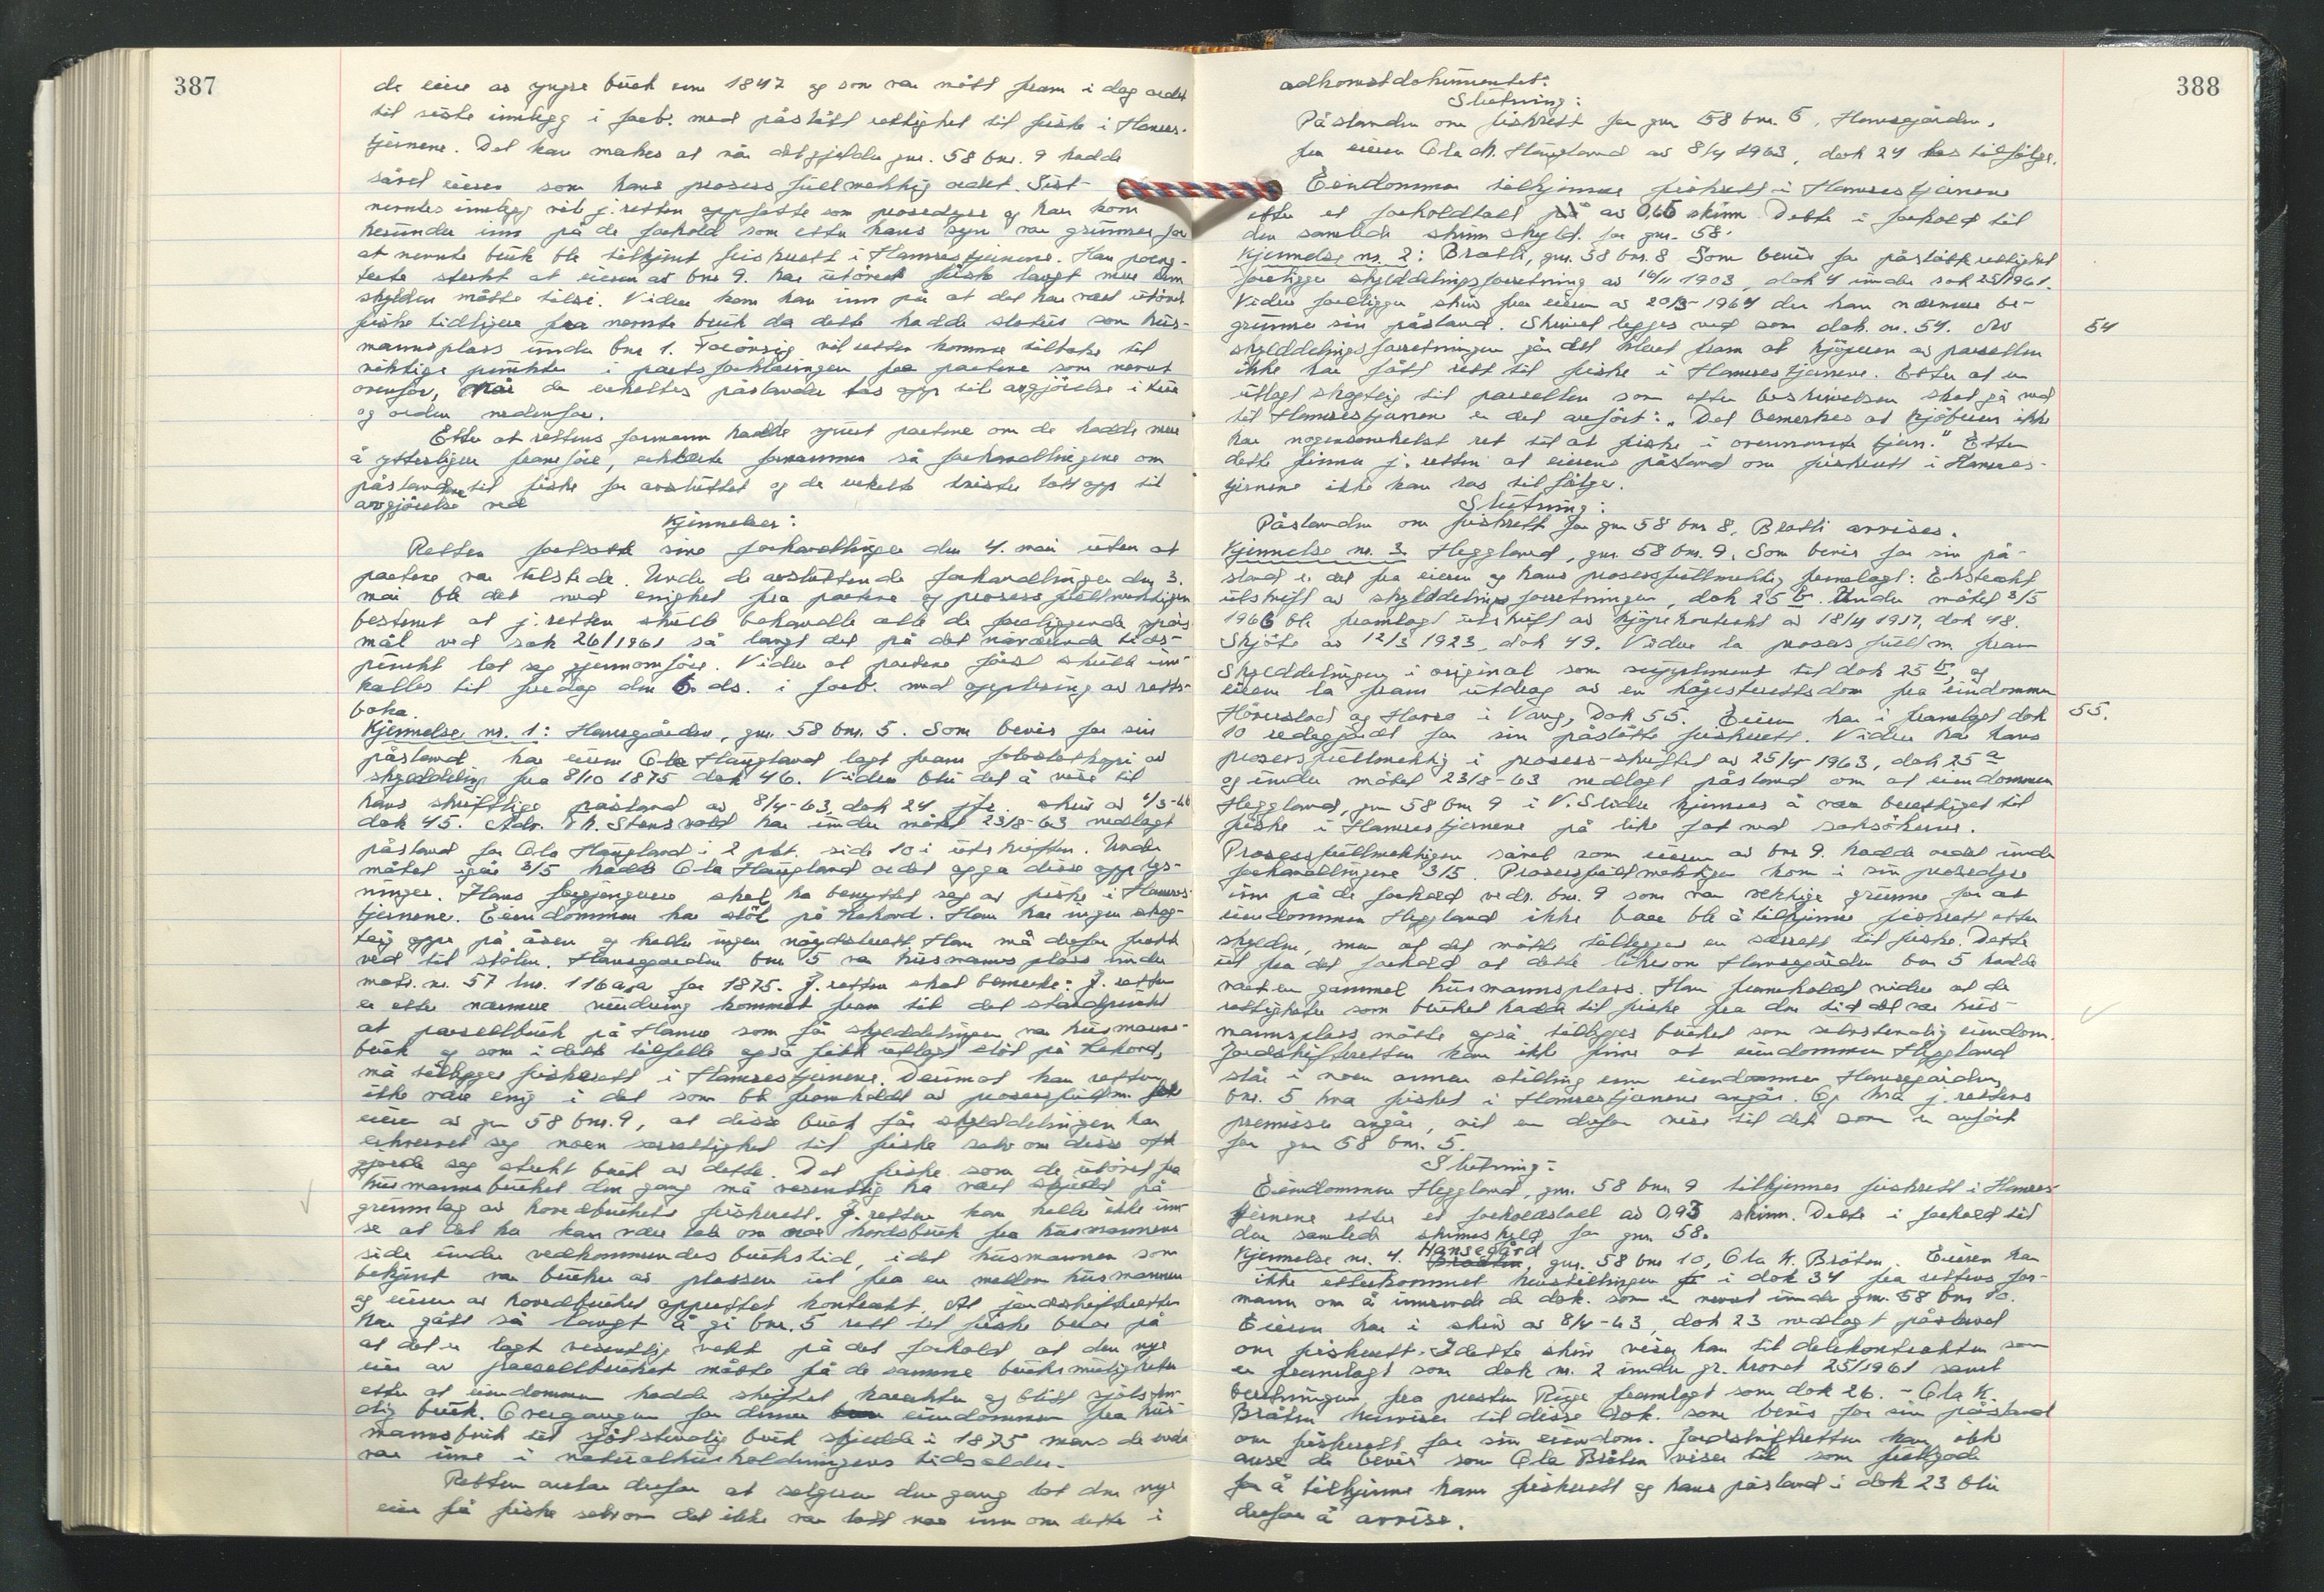 387
de eiere av yngre bruk enn 1847 og som var møtt fram i dag ordet
til siste innlegg i forb. med påstått rettighet til fiske i Hamres-
tjernene. Det kan merkes at når det gjelder gnr. 58 bnr. 9 hadde
såvel eieren som hans prosessfullmektig ordet. Sist-
nemntes innlegg vil j.retten oppfatte som prosedyre og han kom
herunder inn på de forhold som etter hans syn var grunner for
at nemnte bruk ble tilkjent fiskerett i Hamrestjernene. Han poeng-
terte sterkt at eieren av bnr 9. har utøvet fiske langt mere enn
skylden måtte tilsi. Videre kom han inn på at det har vært utøvet
fiske tidligere fra nemnte bruk da dette hadde status som hus-
mannsplass under bnr 1. Forøvrig vil retten komme tilbake til
viktige punkter i partsforklaringen fra partene som nevnt
ovenfor, når de enkeltes påstander tas opp til avgjørelse i tur
og orden nedenfor.
Etter at rettens formann hadde spurt partene om de hadde mere
å ytterligere framføre, erklærte formannen så forhandlingene om
påstandene til fiske for avsluttet og de enkelte tvister tatt opp til
avgjørelse ved
Kjennelser:
Retten fortsatte sine forhandlinger den 4. mai uten at
partene var tilstede. Under de avsluttende forhandlinger den 3.
mai ble det med enighet fra partene og prosessfullmektigen
bestemt at j.retten skulle behandle alle de foreliggende spørs-
mål ved sak 26/1961 så langt det på det nåværende tids-
punkt lot seg gjennomføre. Videre at partene først skulle inn-
kalles til fredag den 6. ds. i forb. med opplesing av retts-
boka.
Kjennelse nr. 1: Hansegården, gnr. 58 bnr. 5. Som bevis for sin
påstand har eieren Ola Haugland lagt fram fotostatkopi av
skylddeling fra 8/10 1875 dok 46. Videre blir det å vise til
hans skriftlige påstand av 8/4-63, dok 24 jfr. skriv av 1/3-66
dok 45. Adv. Th. Stensvold har under møtet 23/8-63 nedlagt
påstand for Ola Haugland i 2 pkt. side 10 i utskriften. Under
møtet igår 3/5 hadde Ola Haugland ordet og ga disse opplys-
ninger. Hans forgjengere skal ha benyttet seg av fiske i Hamres-
tjernene. Eiendommen har støl på Hakord. Han har ingen skog-
teig oppe på åsen og heller ingen nøydshusst. Han må derfor frakte
ved til stølen. Hansegarden bnr 5 var husmannsplass under
matr. nr. 57 lnr. 116a,a før 1875. J.retten skal bemerke: J.retten
er etter nærmere vurdering kommet fram til det standpunkt
at parsellbruk på Hamre som før skylddelingen var husmanns-
bruk og som i dette tilfelle også fikk utlagt støl på Hakord,
må tillegges fiskerett i Hamrestjernene. Derimot kan retten
ikke være enig i det som ble framholdt av prosessfullm. for
eieren av gnr 58 bnr. 9, at disse bruk før skylddelingen har
ervervet seg noen særrettighet til fiske selv om disse oft
gjorde seg sterkt bruk av dette. Det fiske som de utøvet fra
husmannsbruket den gang må vesentlig ha vært skjedd på
grunnlag av hovedbrukets fiskerett. J.retten kan heller ikke inn-
se at det ha kan være tale om noe hordsbruk fra husmannens
side under vedkommendes brukstid, idet husmannen som
bekjent var bruker av plassen ut fra en mellom husmannen
og eieren av hovedbruket opprettet kontrakt. At jordskifteretten
har gått så langt å gi bnr. 5 rett til fiske beror på
at det er lagt vesentlig vekt på det forhold at den nye
eier av parsellbruket måtte få de samme bruksmuligheter
etter at eiendommen hadde skiftet karakter og blitt sjølsten-
dig bruk. Overgangen for denne eiendommen fra hus-
mannsbruk til sjølstendig bruk skjedde i 1875 mens de ennu
var inne i naturalhusholdningens tidsalder.
Retten antar derfor at selgeren den gang lot den nye
eier få fiske selv om det ikke var tatt noe inn om dette i
388
adkomstdokumentet.
Slutning:
Påstanden om fiskerett for gnr 58 bnr. 5, Hansegården,
fra eieren Ola M. Haugland av 8/4 1963, dok 24 tas tilfølge.
Eiendommen tilkjennes fiskerett i Hamrestjernene
etter et forholdstall på av 0,66 skinn. Dette i forhold til
den samlede skinnskyld for gnr. 58.
Kjennelse nr. 2: Bratli, gnr. 58 bnr. 8. Som bevis for påståtte rettighet
foreligger skylddelingsforretning av 16/11 1903, dok 4 under sak 25/1961.
Videre foreligger skriv fra eieren av 20/3-1964 der han nærmere be-
grunner sin påstand. Skrivet legges ved som dok. nr. 54. Av
54
skylddelingsforretningen går det klart fram at kjøperen av parsellen
ikke har fått rett til fiske i Hamrestjernene. Etter at en
utlagt skogteig til parsellen som etter beskrivelsen skal gå ned
til Hamrestjernene er det anført: "Det bemerkes at kjøberen ikke
har nogensomhelst ret til at fiske i ovennævnte tjern." Etter
dette finner j.retten at eierens påstand om fiskerett i Hamres-
tjernene ikke kan tas til følge.
Slutning:
Påstanden om fiskerett for gnr 58 bnr 8, Bratli avvises.
Kjennelse nr. 3. Heggland, gnr. 58 bnr. 9. Som bevis for sin på-
stand er det fra eieren og hans prosessfullmektig fremlagt: Ekstrakt
utskrift av skylddelingsforretningen, dok 25 b. Under møtet 3/5
1966 ble framlagt utskrift av kjøpekontrakt av 18/4 1917, dok 48.
Skjøte av 12/3 1923, dok 49. Videre la prosessfullm. fram
Skylddelingen i original som supplement til dok 25 b, og
eieren la fram utdrag av en høgesterettsdom fra eiendommen
Hövrestad og Hovse i Vang, Dok 55. Eieren har i framlagt dok
55.
10 redegjordt for sin påståtte fiskerett. Videre har hans
prosessfullmektig i prosess-skriftet av 25/4-1963, dok 25 a
og under møtet 23/8-63 nedlagt påstand om at eiendommen
Heggland, gnr 58 bnr 9 i V.Slidre kjennes å være berettiget til
fiske i Hamrestjernene på like fot med saksøkerne.
Prosessfullmektigen såvel som eieren av bnr 9. hadde ordet under
forhandlingene 3/5. Prosessfullmektigen kom i sin prosedyre
inn på de forhold vedr. bnr. 9 som var vektige grunner for at
eiendommen Heggland ikke bare ble å tilkjenne fiskerett etter
skylden, men at det måtte tillegges en særrett til fiske. Dette
ut fra det forhold at dette likesom Hansegården bnr 5 hadde
vært en gammel husmannsplass. Han framholdt videre at de
rettigheter som bruket hadde til fiske fra den tid det var hus-
mannsplass måtte også tillegges bruket som selvstendig eiendom.
Jordskifteretten kan ikke finne at eiendommen Heggland
står i noen annen stilling enn eiendommen Hansegården,
bnr. 5 hva fisket i Hamrestjernene angår. Og hva j.rettens
premisser angår, vil en derfor vise til det som er anført
for gnr 58 bnr. 5.
Slutning:
Eiendommen Heggland, gnr. 58 bnr 9 tilkjennes fiskerett i Hamres-
tjernene etter et forholdstall av 0,93 skinn. Dette i forhold til
den samlede skinnskyld for gnr 58.
Kjennelse nr. 4. Hansegård, gnr. 58 bnr 10, Ola K. Bråten. Eieren har
ikke etterkommet henstillingen i dok 34 fra rettens for-
mann om å innsende de dok. som er nevnt under gnr. 58 bnr 10.
Eieren har i skriv av 8/4-63, dok 23 nedlagt påstand
om fiskerett. I dette skriv viser han til delekontrakten som
er framlagt som dok nr. 2 under gr. kravet 25/1961 samt
beretningen fra presten Ruge framlagt som dok 26. - Ola K.
Bråten henviser til disse dok. som bevis for sin påstand
om fiskerett for sin eiendom. Jordskifteretten kan ikke
anse de bevis som Ola Bråten viser til som fullgode
for å tilkjenne ham fiskerett og hans påstand i dok 23 blir
derfor å avvise.